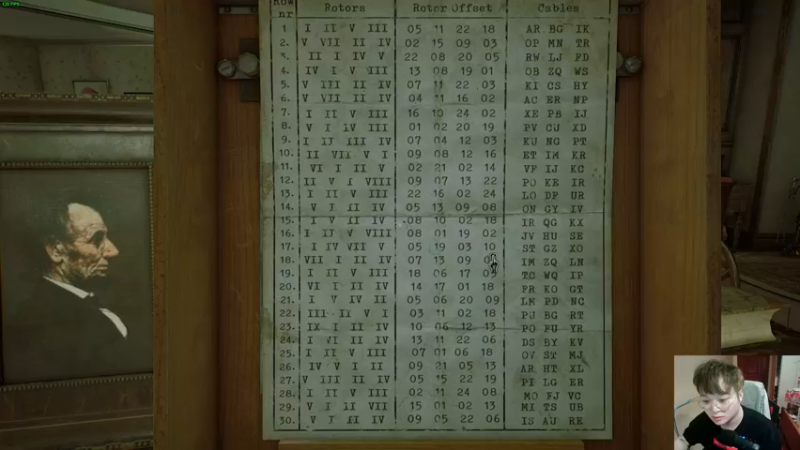 Row nr Rotors Rotor Offset Cables
1 I II V III 05 11 22 18 AR BG IK
2. V VII II IV 02 15 09 03 OP MN TR
3. II I IV V 22 08 20 05 RW LJ FD
4. IV I V III 13 08 19 01 OB ZQ WS
5. V III II IV 07 11 22 03 KI CS HY
6. V VII II IV 04 11 16 02 AC ER NP
7. I II V III 16 10 24 02 XE PB IJ
8. V I IV III 01 02 20 19 PV CJ XD
9. I IV III IV 07 04 12 03 KU NG PT
10. II VII V I 09 08 12 16 ET IM KR
11. VI I II V 02 21 02 14 VF IJ KC
12. II V I VIII 09 07 13 22 PO KE IR
13. I II V III 22 16 02 24 LO DF UR
14. V I II IV 05 13 09 08 ON GY IV
15. I V II IV 08 10 02 18 IR QG KX
16. I IV V VIII 08 01 19 02 JV HU SE
17. I IV VII V 05 19 03 10 ST GZ XO
18. VII I II IV 07 13 09 IM ZQ LN
19. I II V III 18 06 17 09 TC WQ IP
20. I II IV V 14 17 01 18 FR KO GT
21. I V IV II 05 06 20 09 LM PD NC
22. III II V I 03 11 02 18 PU BG RT
23. IX I II IV 10 06 12 13 PO FU YR
24. I VI II IV 13 11 22 06 DS BY KV
25. I II V III 07 01 06 18 OV ST MJ
26. IV V I II 09 21 05 13 AR HT XL
27. V III II IV 05 15 22 19 PI LG ER
28. I II V III 02 11 24 08 MO FJ VC
29. V I II VII 15 01 02 13 MI TS UB
30. V I II IV 09 05 22 06 IS AU RE